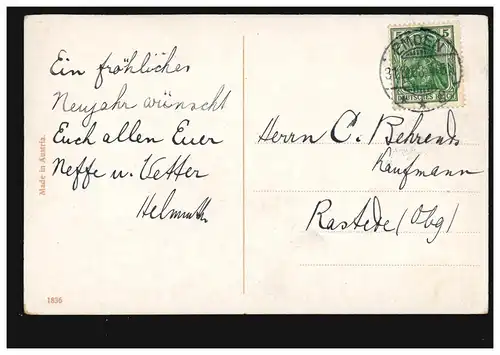 Ein fröhliches
Neujahr wünscht
Euch allen Euer
Neffe u. Vetter
Helmuth
Made in Austria.
1856
5 5
EMDEN
DEUTSCHES
Herrn C. Behrends
Kaufmann
Rastede (Obg)